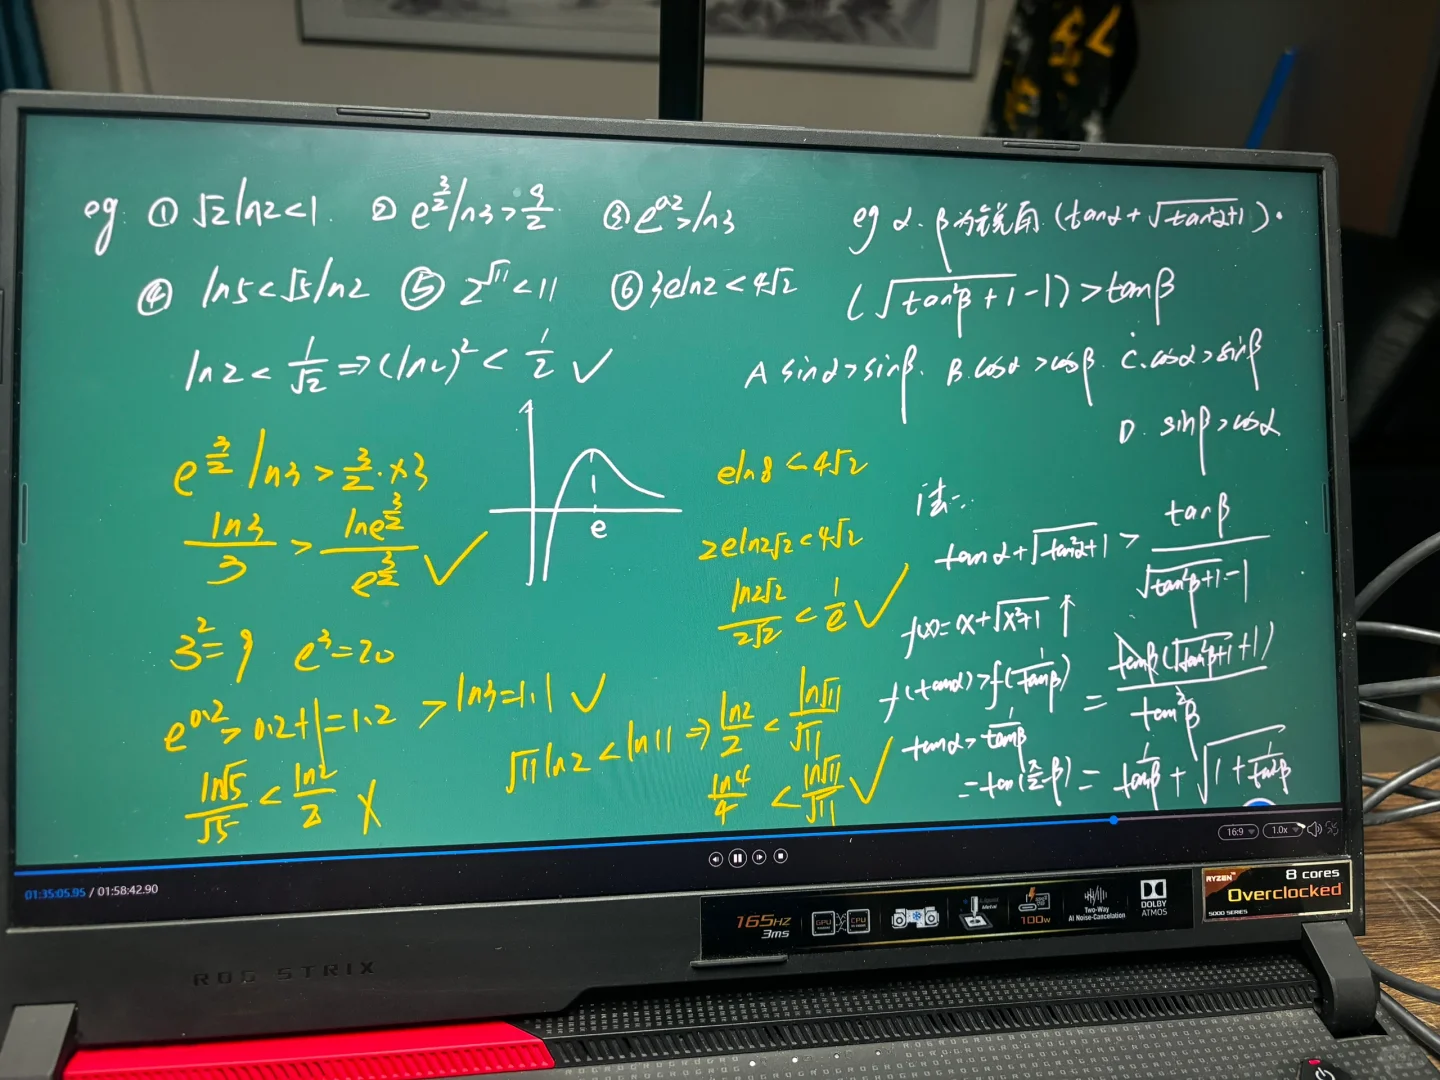 eg. ① √2 ln2<1. ② e^{3/2} ln3 > 9/2. ③ e^{0.2} > ln3
④ ln5<√5 ln2 ⑤ 2^{√11} < 11 ⑥ 3eln2 < 4√2
ln2 < 1/√2 ⇒ (ln2)² < 1/2 ✓
e^{3/2} ln3 > 3/2 · ×3
ln3/3 > lne^{3/2}/e^{3/2} ✓
e
3²=9 e³=20
e^{0.2} > 0.2+1=1.2 > ln3=1.1 ✓
ln√5/√5 < ln2/2 ×
eln8 < 4√2
2eln2√2 < 4√2
ln2√2/2√2 < 1/e ✓
√11 ln2 < ln11 ⇒ ln2/2 < ln√11/√11
ln4/4 < ln√11/√11 ✓
eg α.β为锐角.(tanα+√(tan²α+1))·
(√(tan²β+1)-1)>tanβ
A sinα>sinβ. B. cosα>cosβ. C. cosα>sinβ
D. sinβ>cosα
法一:
tanα+√(tan²α+1) > tanβ/(√(tan²β+1)-1)
f(x)=x+√(x²+1) ↑
f(tanα)>f(1/tanβ)
= tanβ(√(tan²β+1)+1)/tan²β
tanα>1/tanβ
=tan(π/2-β) = 1/tanβ+√(1+1/tan²β)
01:35:05.95 / 01:58:42.90
16:9 1.0x
165HZ
3ms
GPU
CPU
Liquid
Metal
100W
Two-Way
AI Noise-Cancelation
DOLBY
ATMOS
RYZEN
5000 SERIES
8 cores
Overclocked
ROG STRIX